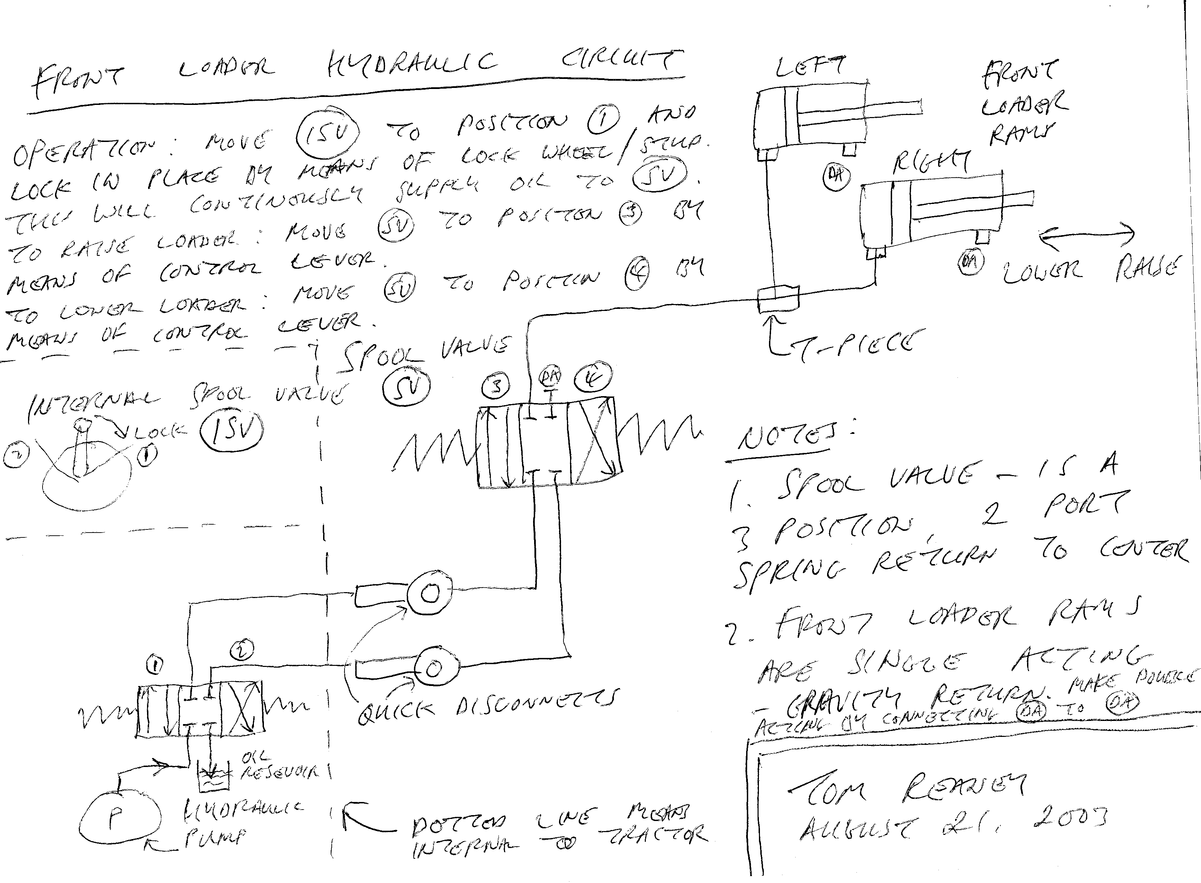 FRONT LOADER HYDRAULIC CIRCUIT
OPERATION: MOVE ISV TO POSITION 1 AND
LOCK IN PLACE BY MEANS OF LOCK WHEEL/STUP.
THIS WILL CONTINOUSLY SUPPLY OIL TO SV.
TO RAISE LOADER: MOVE SV TO POSITION 3 BY
MEANS OF CONTROL LEVER.
TO LOWER LOADER: MOVE SV TO POSITION 4 BY
MEANS OF CONTROL LEVER.
LEFT
FRONT
LOADER
RAMS
DA
RIGHT
DA
LOWER RAISE
T-PIECE
SPOOL VALVE
SV
3 DA 4
INTERNAL SPOOL VALVE
LOCK ISV
2 1
NOTES:
1. SPOOL VALVE - IS A
3 POSITION, 2 PORT
SPRING RETURN TO CENTER
2. FRONT LOADER RAMS
ARE SINGLE ACTING
- GRAVITY RETURN. MAKE DOUBLE
ACTING BY CONNECTING DA TO DA
1 2
QUICK DISCONNECTS
OIL
RESEVOIR
P
HYDRAULIC
PUMP
DOTTED LINE MEANS
INTERNAL TO TRACTOR
TOM REANEY
AUGUST 21, 2003